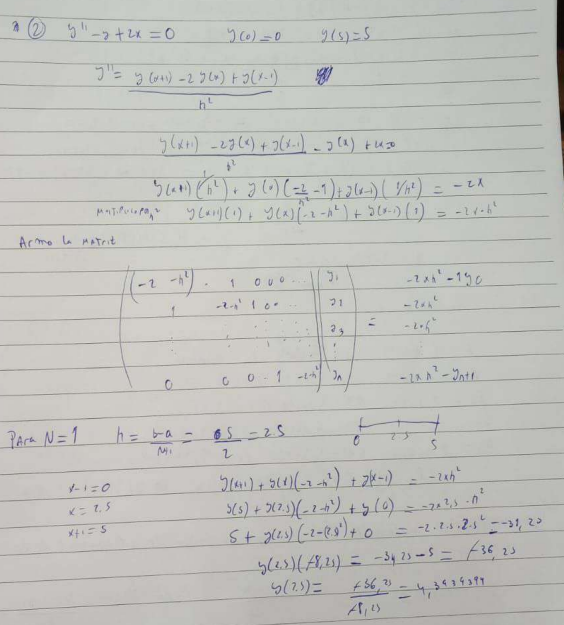 ② y'' - y + 2x = 0 y(0) = 0 y(5) = 5
y'' = y(x+1) - 2y(x) + y(x-1)
h²
y(x+1) - 2y(x) + y(x-1) - y(x) +
h²
y(x+1)(1/h²) + y(x)(-2/h² - 1) + y(x-1)(1/h²) = -2x
y(x+1)(1) + y(x)(-2-h²) + y(x-1)(1) = -2x·h²
Armo la matriz
(-2 -h²) - 1 0 0 0 ... y1 -2xh² - 1y0
1 -2-h² 1 0 .. y2 -2xh²
y3 = -2xh²
0 0 0 - 1 -2-h² yn -2xh² - yn+1
Para N=1 h = b-a/N+1 = 5/2 = 2.5 0 2.5 5
x-1 = 0 y(x+1) + y(x)(-2-h²) + y(x-1) = -2xh²
x = 2,5 y(5) + y(2.5)(-2-h²) + y(0) = -2x2,5·h²
x+1 = 5 5 + y(2.5)(-2-(2.5²)) + 0 = -2·2.5·2.5² =
y(2.5)(-8,25) = -5 = -36,25
y(2.5) = -36,25/-8,25 = 4,3939394